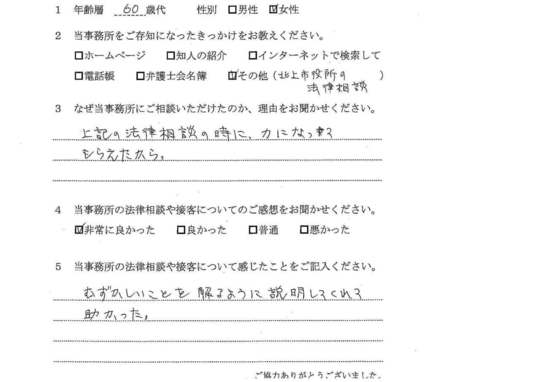 1 年齢層 60 歳代 性別 □男性 ☑女性
2 当事務所をご存知になったきっかけをお教えください。
□ホームページ □知人の紹介 □インターネットで検索して
□電話帳 □弁護士会名簿 ☑その他（北上市役所の
法律相談）
3 なぜ当事務所にご相談いただけたのか、理由をお聞かせください。
上記の法律相談の時に、力になって
もらえたから。
4 当事務所の法律相談や接客についてのご感想をお聞かせください。
☑非常に良かった □良かった □普通 □悪かった
5 当事務所の法律相談や接客について感じたことをご記入ください。
むずかしいことを解るように説明してくれて
助かった。
ご協力ありがとうございました。